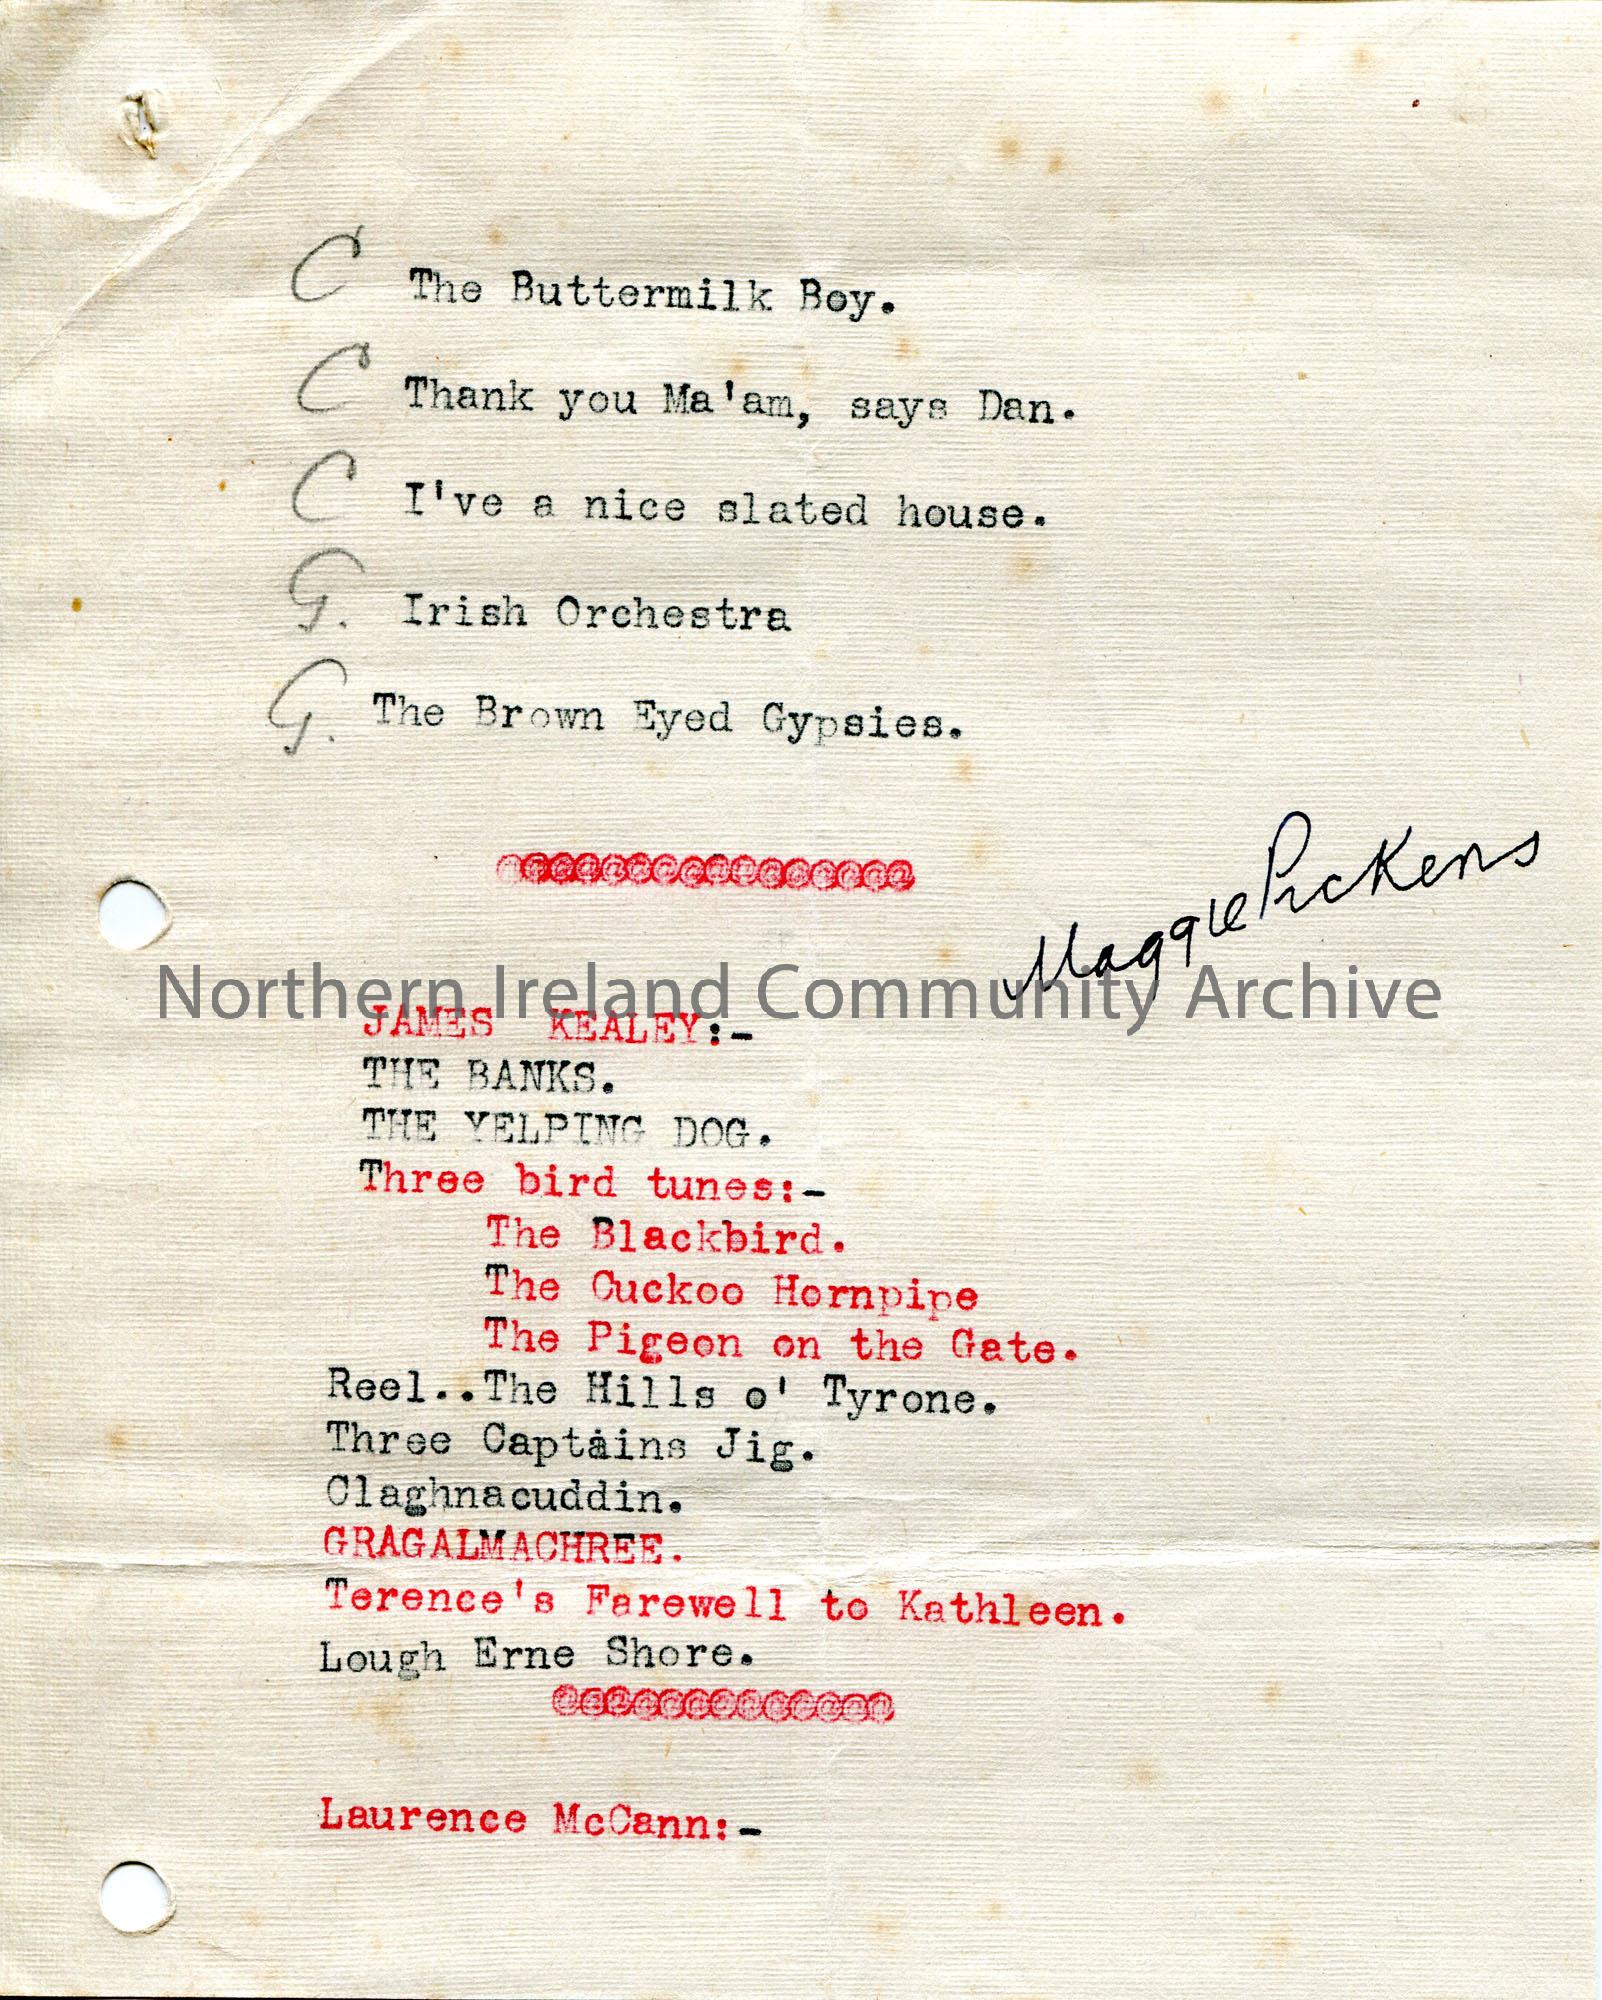 C The Buttermilk Boy.
C Thank you Ma'am, says Dan.
C I've a nice slated house.
G. Irish Orchestra
G. The Brown Eyed Gypsies.
@@@@@@@@@@@@@@@@
Maggie Pickens
Northern Ireland Community Archive
JAMES KEALEY:-
THE BANKS.
THE YELPING DOG.
Three bird tunes:-
The Blackbird.
The Cuckoo Hornpipe
The Pigeon on the Gate.
Reel..The Hills o' Tyrone.
Three Captains Jig.
Claghnacuddin.
GRAGALMACHREE.
Terence's Farewell to Kathleen.
Lough Erne Shore.
@@@@@@@@@@@@@
Laurence McCann:-